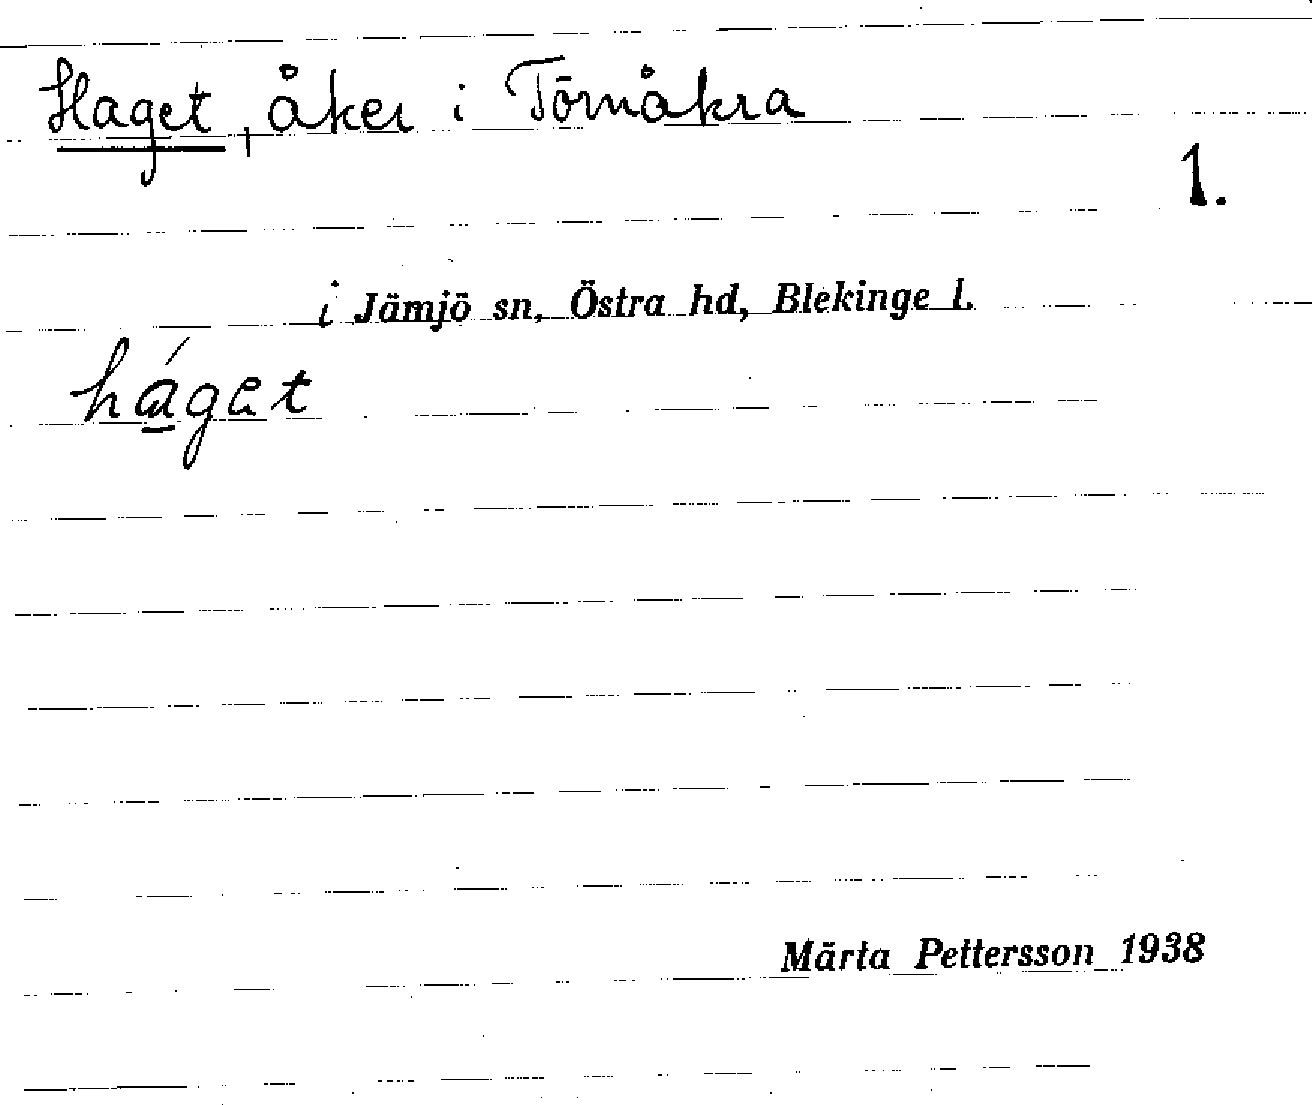 Haget, åker i Törnåkra
1.
i Jämjö sn, Östra hd, Blekinge l.
háget
Märta Pettersson 1938